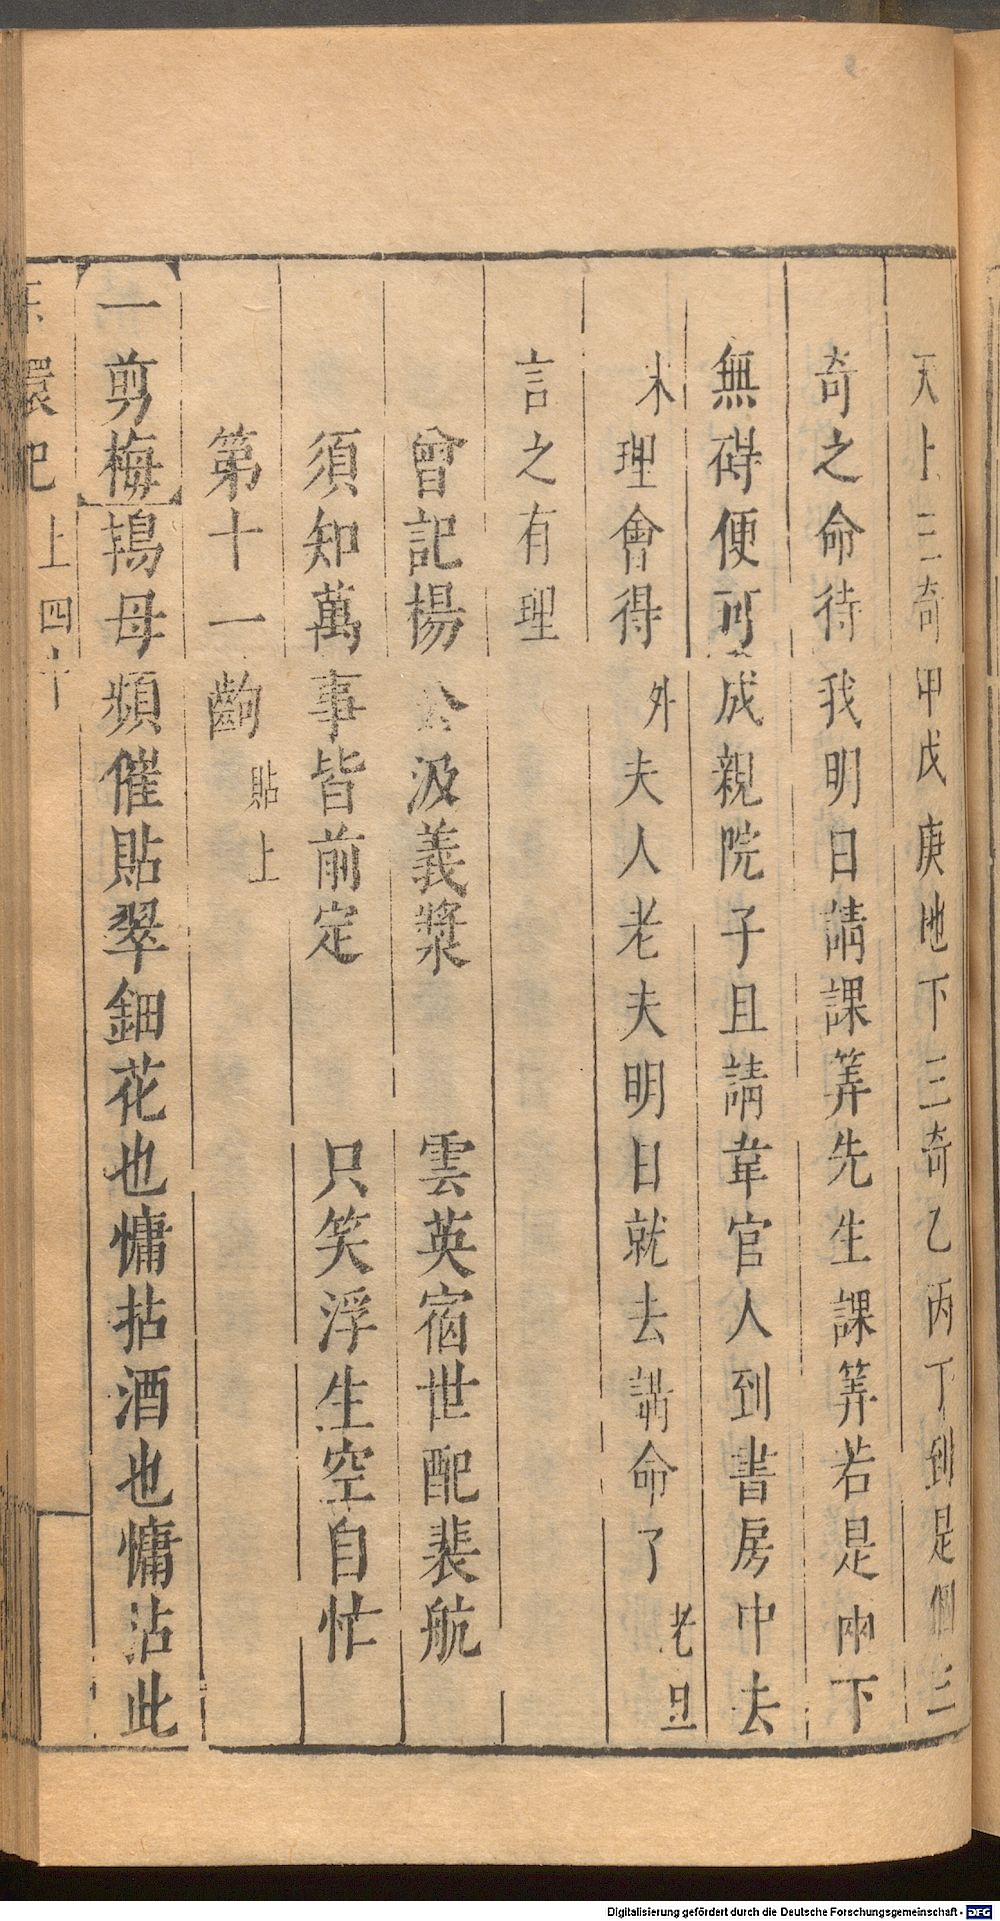 天上三奇甲戊庚地下三奇乙丙丁到是個三
奇之命待我明日請課筭先生課筭若是兩下
無碍便可成親院子且請韋官人到書房中去
末理會得外夫人老夫明日就去講命了老旦
言之有理
曾記楊公汲義漿　雲英宿世配裴航
須知萬事皆前定　只笑浮生空自忙
第十一齣貼上
一剪梅鴇母頻催貼翠鈿花也慵拈酒也慵沾此
玉環記上四十
Digitalisierung gefördert durch die Deutsche Forschungsgemeinschaft - DFG